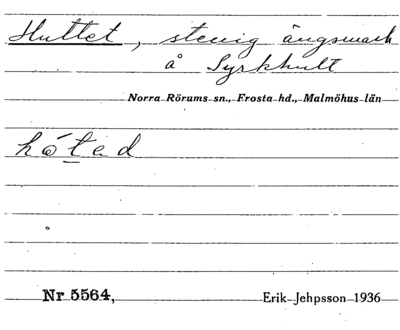 Huttet, stenig ängsmark
å Syrkhult
Norra Rörums sn., Frosta hd., Malmöhus län
hótad
Nr 5564, Erik Jehpsson 1936